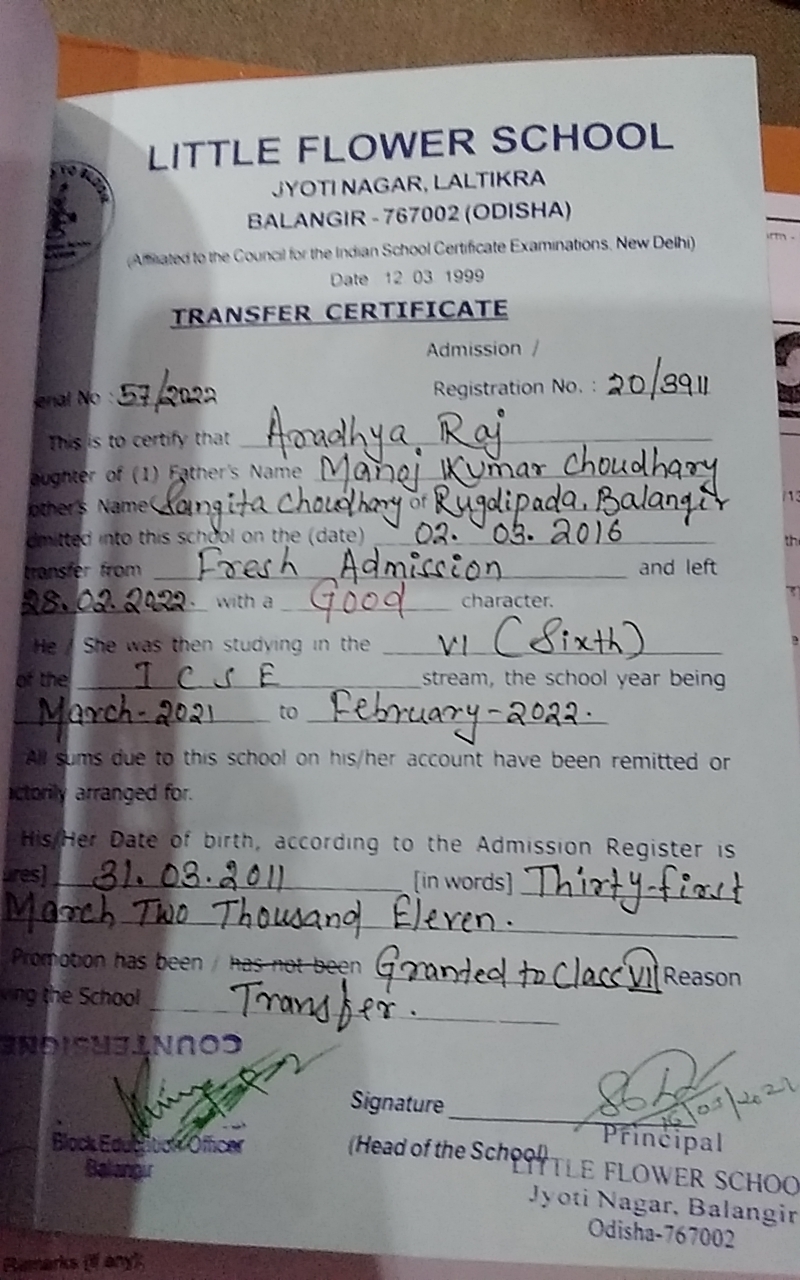 LITTLE FLOWER SCHOOL
JYOTI NAGAR, LALTIKRA
BALANGIR - 767002 (ODISHA)
(Affiliated to the Council for the Indian School Certificate Examinations. New Delhi)
Date 12 03 1999
TRANSFER CERTIFICATE
Admission /
erial No : 57/2022 Registration No. : 20/3911
This is to certify that Aradhya Raj
aughter of (1) Father's Name Manoj Kumar Choudhary
other's Name Sangita Choudhary of Rugdipada, Balangir
dmitted into this school on the (date) 02. 03. 2016
transfer from Fresh Admission and left
28.02.2022. with a Good character.
He / She was then studying in the VI (Sixth)
of the I C S E stream, the school year being
March-2021 to February-2022.
All sums due to this school on his/her account have been remitted or
actorily arranged for.
His/Her Date of birth, according to the Admission Register is
ures] 31.03.2011 [in words] Thirty-first
March Two Thousand Eleven.
Promotion has been / has not been Granted to Class VII Reason
ving the School Transfer.
COUNTERSIGNE
Block Education Officer
Balangir
Signature
(Head of the School)
Principal
LITTLE FLOWER SCHOO
Jyoti Nagar, Balangir
Odisha-767002
Remarks (if any):